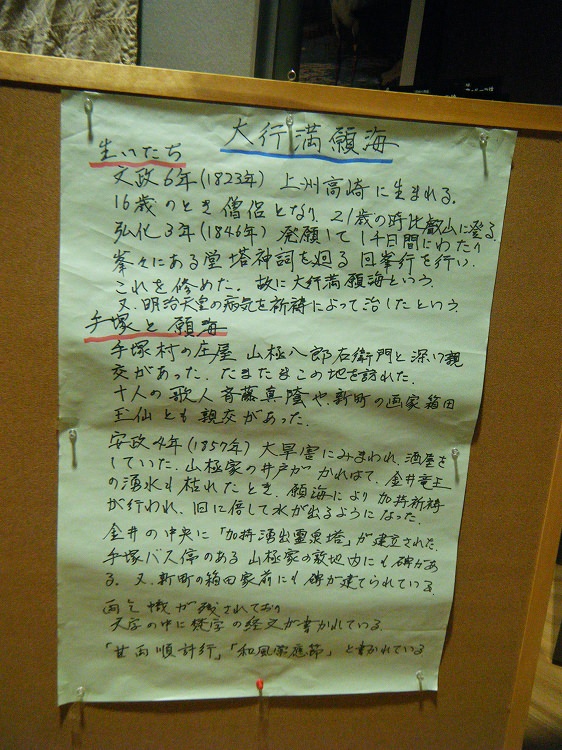 大行満願海
生いたち
文政6年(1823年) 上州高崎に生まれる.
16歳のとき僧侶となり, 21歳の時比叡山に登る.
弘化3年(1846年) 発願して1千日間にわたり
峯々にある堂塔神詞を廻る回峯行を行い.
これを修めた. 故に大行満願海という.
又.明治天皇の病気を祈祷によって治したという.
手塚と願海
手塚村の庄屋 山極八郎右衛門と深い親
交があった. たまたまこの地を訪れた.
十人の歌人斉藤真蔭や.新町の画家箱田
玉仙とも親交があった.
安政4年(1857年) 大旱害にみまわれ.酒屋を
していた.山極家の井戸がかれはて.金井竜王
の湧水も枯れたとき. 願海により加持祈祷
が行われ、旧に倍して水が出るようになった.
金井の中央に「加持湧出霊泉塔」が建立された.
手塚バス停のある山極家の敷地内にも碑があ
る. 又.新町の箱田家前にも碑が建てられている.
雨乞幟が残されており
文字の中に経の経文が書かれている.
「甘雨順時行」「和風常應節」と書かれている